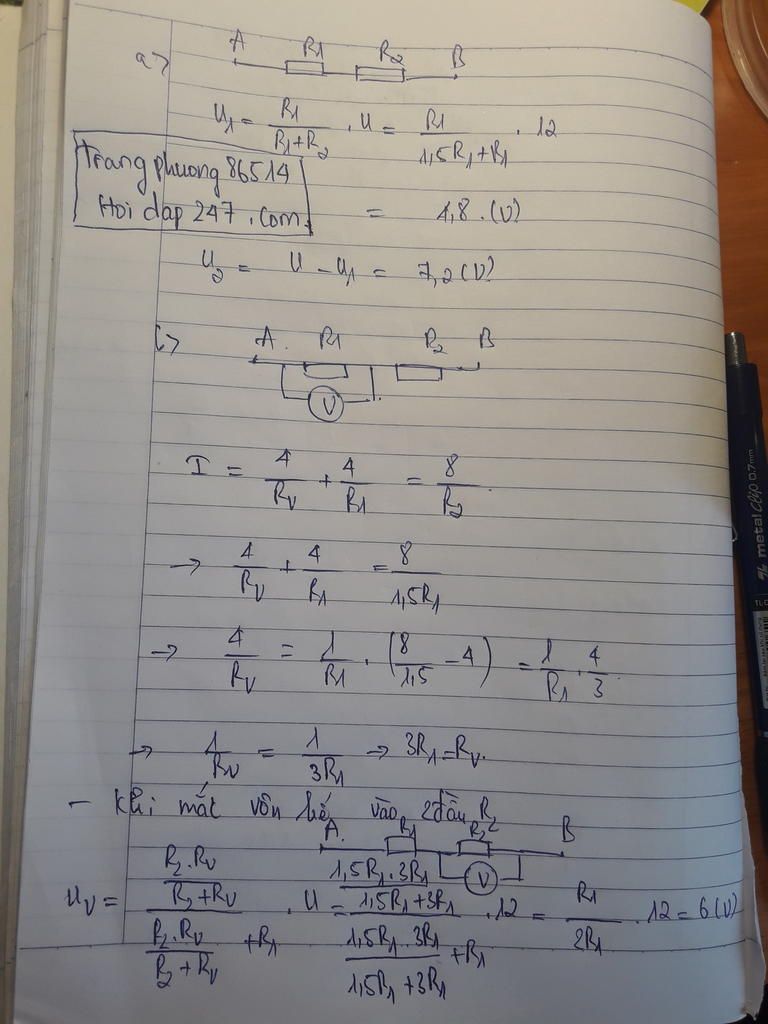 a> A R1 R2 B
U1 = R1/(R1+R2) . U = R1/(1,5R1+R1) . 12
Trang phuong 86514
Hoi dap 247 .com.
= 4,8 . (V)
U2 = U - U1 = 7,2 (V)
A. R1 R2 B
V
I = 4/RV + 4/R1 = 8/R2
→ 4/RV + 4/R1 = 8/(1,5R1)
→ 4/RV = 1/R1 . (8/1,5 - 4) = 1/R1 . 4/3
→ 1/RV = 1/(3R1) → 3R1 = RV.
- Khi mắt vôn kế vào 2 đầu R2
A. R1 R2 B
V
UV = (R2.RV/(R2+RV)) / (R2.RV/(R2+RV) + R1) . U = (1,5R1.3R1/(1,5R1+3R1)) / (1,5R1.3R1/(1,5R1+3R1) + R1) . 12 = R1/(2R1) . 12 = 6 (V)
metal clip 0.7mm